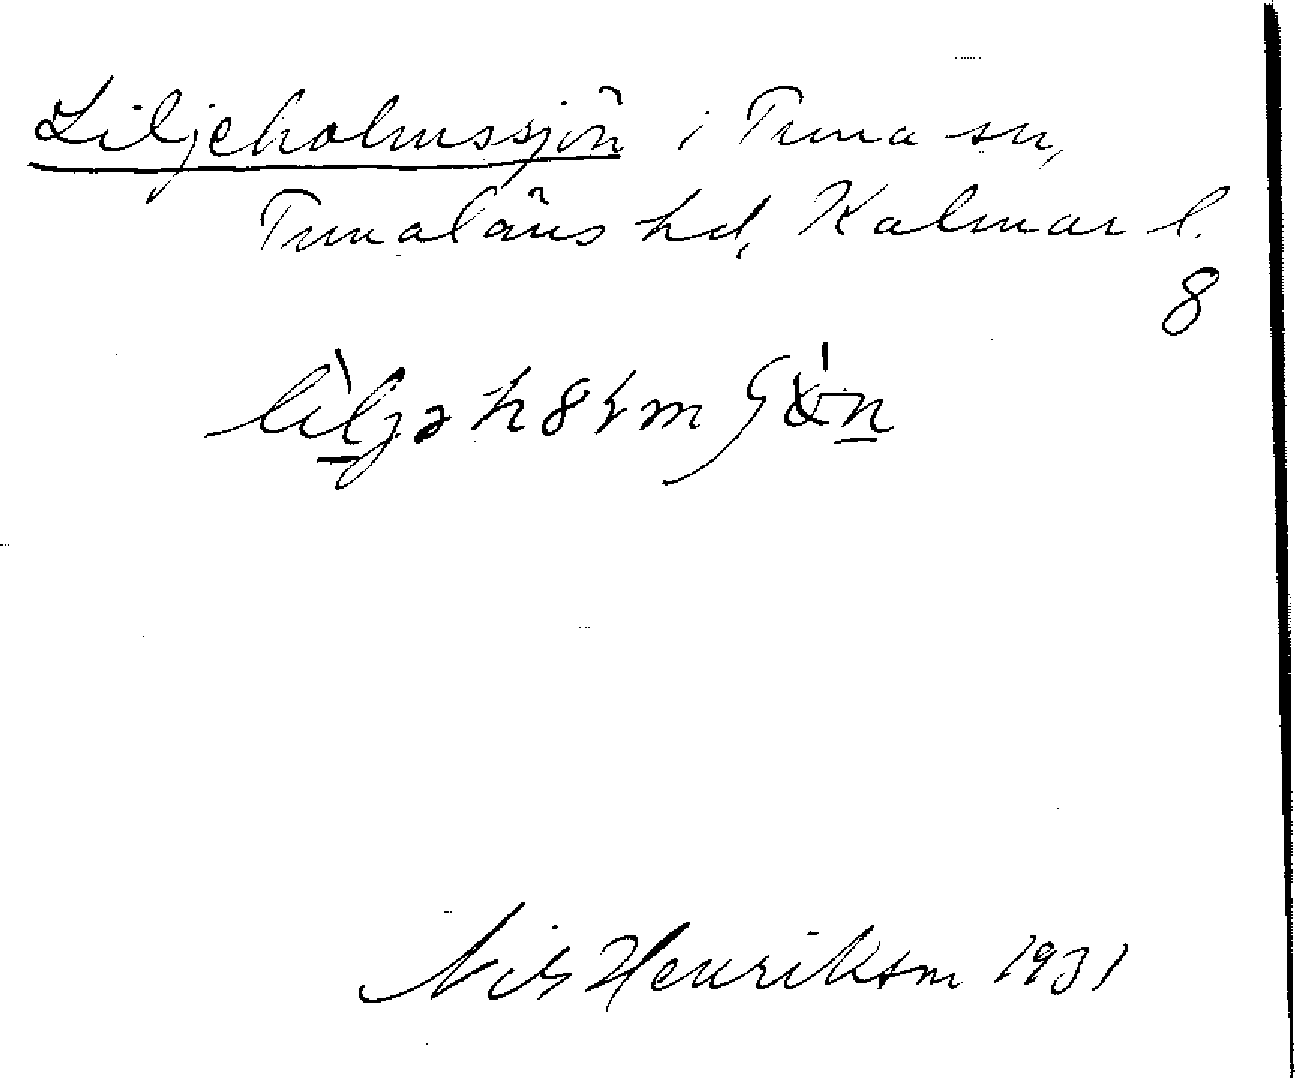 Liljeholmssjön i Tuna sn,
Tunaläns hd, Kalmar l.
8
Nils Henrikson 1931